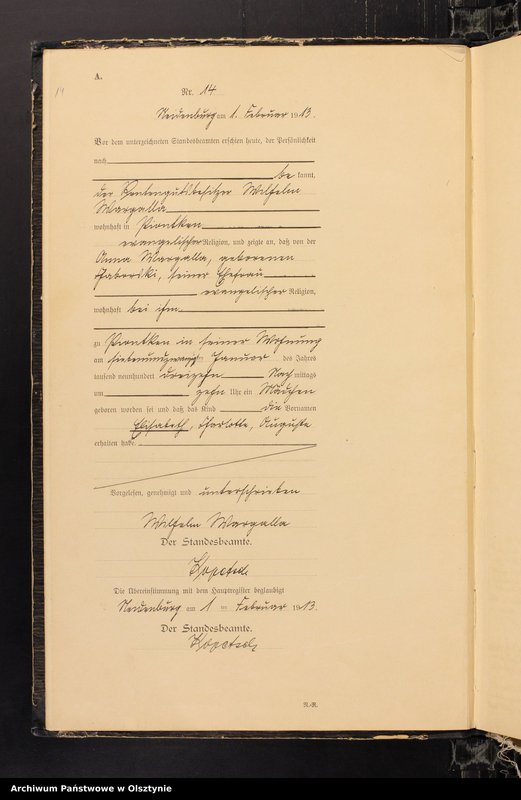 14
A.
Nr. 14
Neidenburg am 1. Februar 1913.
Vor dem unterzeichneten Standesbeamten erschien heute, der Persönlichkeit
nach
be kannt,
der Rentengutsbesitzer Wilhelm
Wargalla
wohnhaft in Piontken
evangelischer Religion, und zeigte an, daß von der
Anna Wargalla, geborenen
seiner Ehefrau
evangelischer Religion,
wohnhaft bei ihm
zu Piontken in seiner Wohnung
am siebenundzwanzigsten Januar des Jahres
tausend neunhundert dreizehn Nach mittags
um zehn Uhr ein Mädchen
geboren worden sei und daß das Kind die Vornamen
Elisabeth, Charlotte, Auguste
erhalten habe.
Vorgelesen, genehmigt und unterschrieben
Wilhelm Wargalla
Der Standesbeamte.
Die Übereinstimmung mit dem Hauptregister beglaubigt
Neidenburg am 1 ten Februar 1913.
Der Standesbeamte.
N.-R.
Archiwum Państwowe w Olsztynie